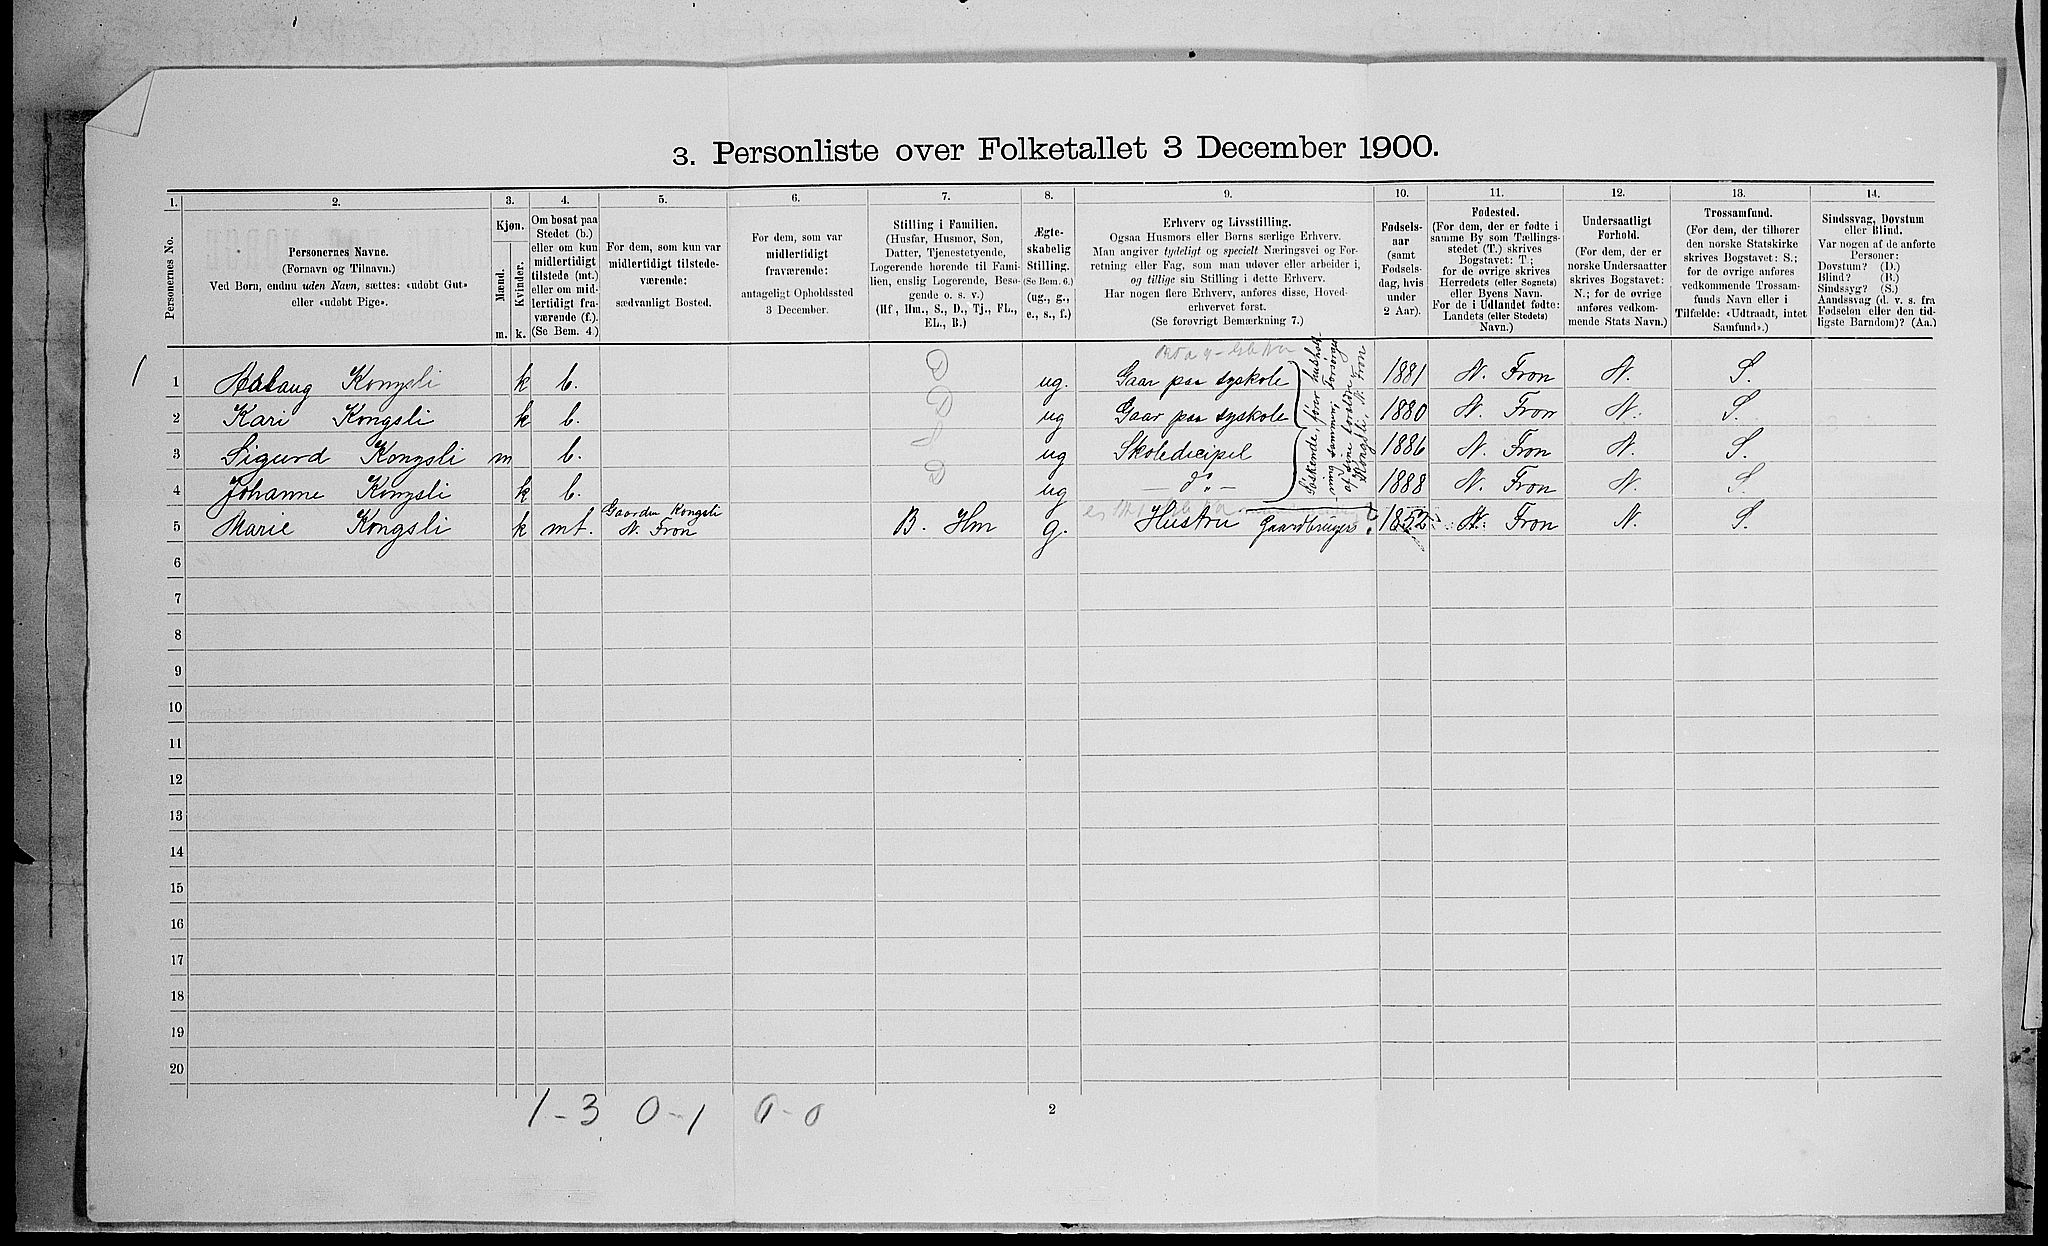 3. Personliste over Folketallet 3 December 1900.
1. 2. 3. 4. 5. 6. 7. 8. 9. 10. 11. 12. 13. 14.
Personernes No.
Personernes Navne.
(Fornavn og Tilnavn.)
Ved Børn, endnu uden Navn, sættes: «udøbt Gut»
eller «udøbt Pige».
Kjøn.
Mænd.
Kvinder.
m. k.
Om bosat paa
Stedet (b.)
eller om kun
midlertidigt
tilstede (mt.)
eller om mid-
lertidigt fra-
værende (f.).
(Se Bem. 4.)
For dem, som kun var
midlertidigt tilstede-
værende:
sædvanligt Bosted.
For dem, som var
midlertidigt
fraværende:
antageligt Opholdssted
3 December.
Stilling i Familien.
(Husfar, Husmor, Søn,
Datter, Tjenestetyende,
Logerende hørende til Fami-
lien, enslig Logerende, Besø-
gende o. s. v.)
(Hf, Hm., S., D., Tj., FL.,
EL., B.)
Ægte-
skabelig
Stilling.
(Se Bem. 6.)
(ug., g.,
e., s., f.)
Erhverv og Livsstilling.
Ogsaa Husmors eller Børns særlige Erhverv.
Man angiver tydeligt og specielt Næringsvei og For-
retning eller Fag, som man udøver eller arbeider i,
og tillige sin Stilling i dette Erhverv.
Har nogen flere Erhverv, anføres disse, Hoved-
erhvervet først.
(Se forøvrigt Bemærkning 7.)
Fødsels-
aar
(samt
Fødsels-
dag, hvis
under
2 Aar).
Fødested.
(For dem, der er fødte i
samme By som Tællings-
stedet (T.) skrives
Bogstavet: T.;
for de øvrige skrives
Herredets (eller Sognets)
eller Byens Navn.
For de i Udlandet fødte:
Landets (eller Stedets)
Navn.)
Undersaatligt
Forhold.
(For dem, der er
norske Undersaatter
skrives Bogstavet:
N.; for de øvrige
anføres vedkom-
mende Stats Navn.)
Trossamfund.
(For dem, der tilhører
den norske Statskirke
skrives Bogstavet: S.;
for de øvrige anføres
vedkommende Trossam-
funds Navn eller i
Tilfælde: «Udtraadt, intet
Samfund».)
Sindssvag, Døvstum
eller Blind.
Var nogen af de anførte
Personer:
Døvstum? (D.)
Blind? (B.)
Sindssyg? (S.)
Aandssvag (d. v. s. fra
Fødselen eller den tid-
ligste Barndom)? (Aa.)
1
1 Aslaug Kongsli k b. D ug. Gaar paa syskole 1881 N. Fron N. S.
2 Kari Kongsli k b. D ug Gaar paa syskole 1880 N. Fron N. S.
3 Sigurd Kongsli m b. S ug Skoledicipel 1886 N. Fron N. S.
4 Johanne Kongsli k b. D ug — d" — 1888 N. Fron N. S.
Søskende, fører hushold-
ning sammen, Forsørges
af sine foraldre
Kongsli, N. Fron
5 Marie Kongsli k mt. Gaarden Kongsli
N. Fron B. Hm g. Hustru Gaardbruger 1852 N. Fron N. S.
6
7
8
9
10
11
12
13
14
15
16
17
18
19
20
1-3 0-1 0-0
2